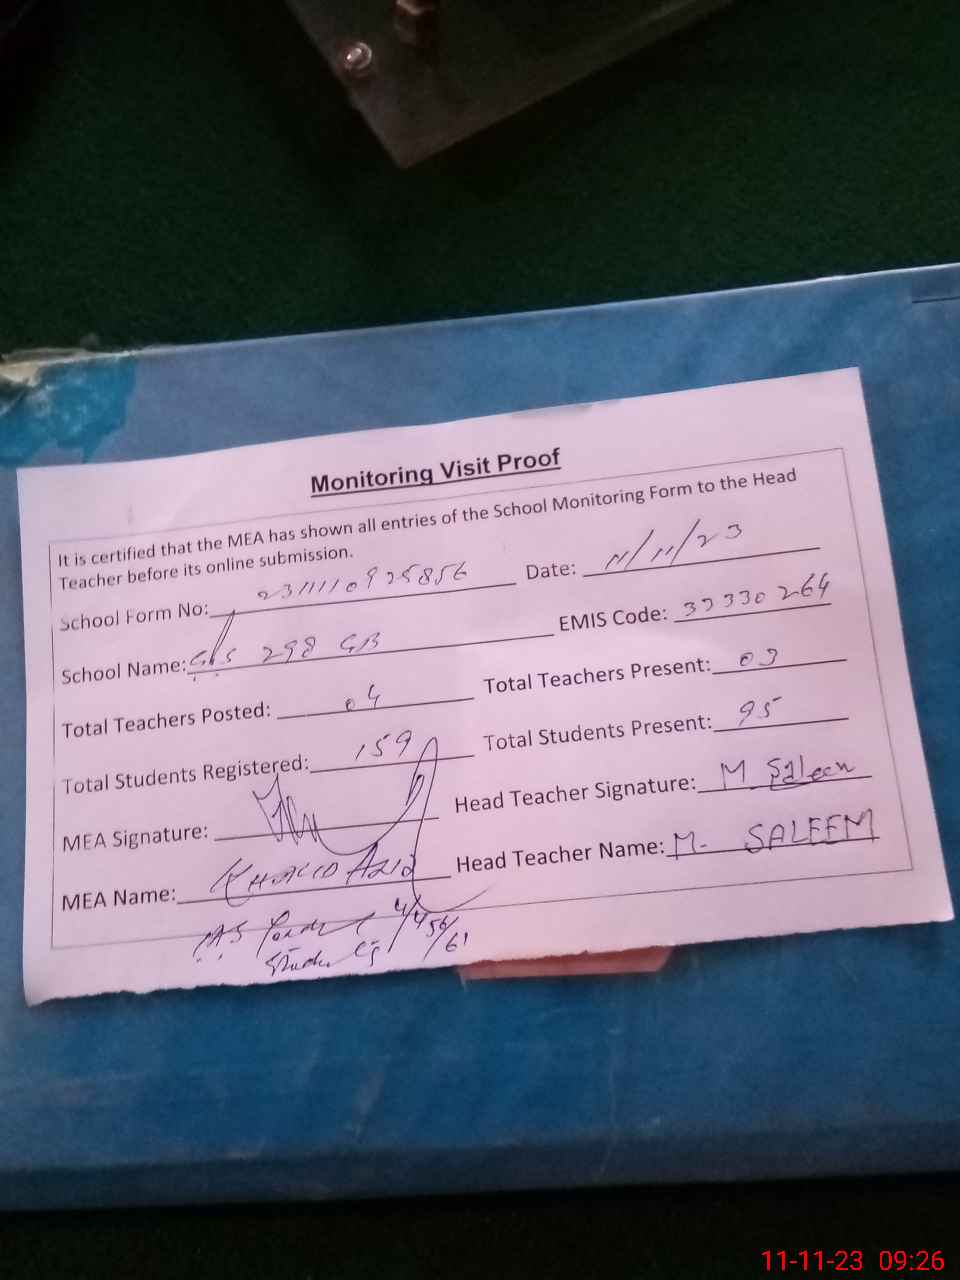 Monitoring Visit Proof
It is certified that the MEA has shown all entries of the School Monitoring Form to the Head
Teacher before its online submission.
School Form No: 231110925856 Date: 11/11/23
School Name: 298 GB EMIS Code: 33330264
Total Teachers Posted: 04 Total Teachers Present: 03
Total Students Registered: 159 Total Students Present: 95
MEA Signature: Head Teacher Signature: M Saleem
MEA Name: KHALID AZIZ Head Teacher Name: M. SALEEM
11-11-23 09:26